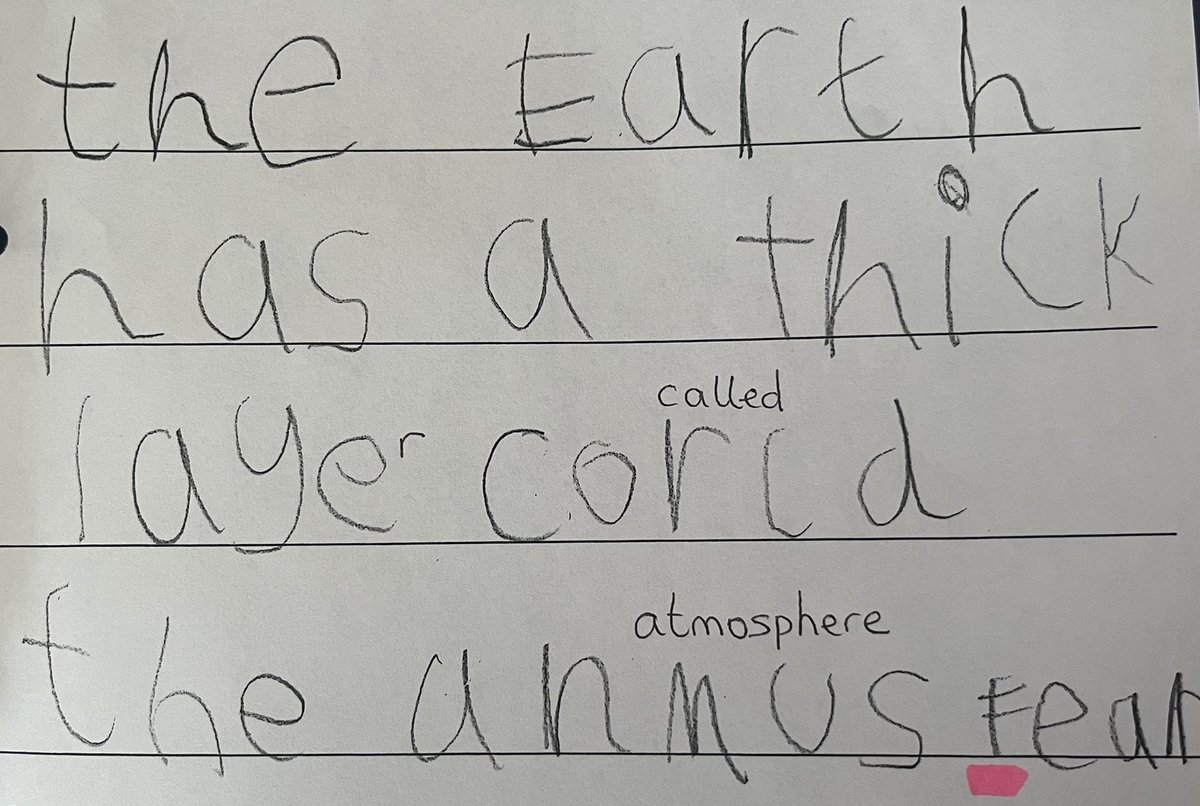 the Earth
has a thick
called
layer corld
atmosphere
the anmusfear